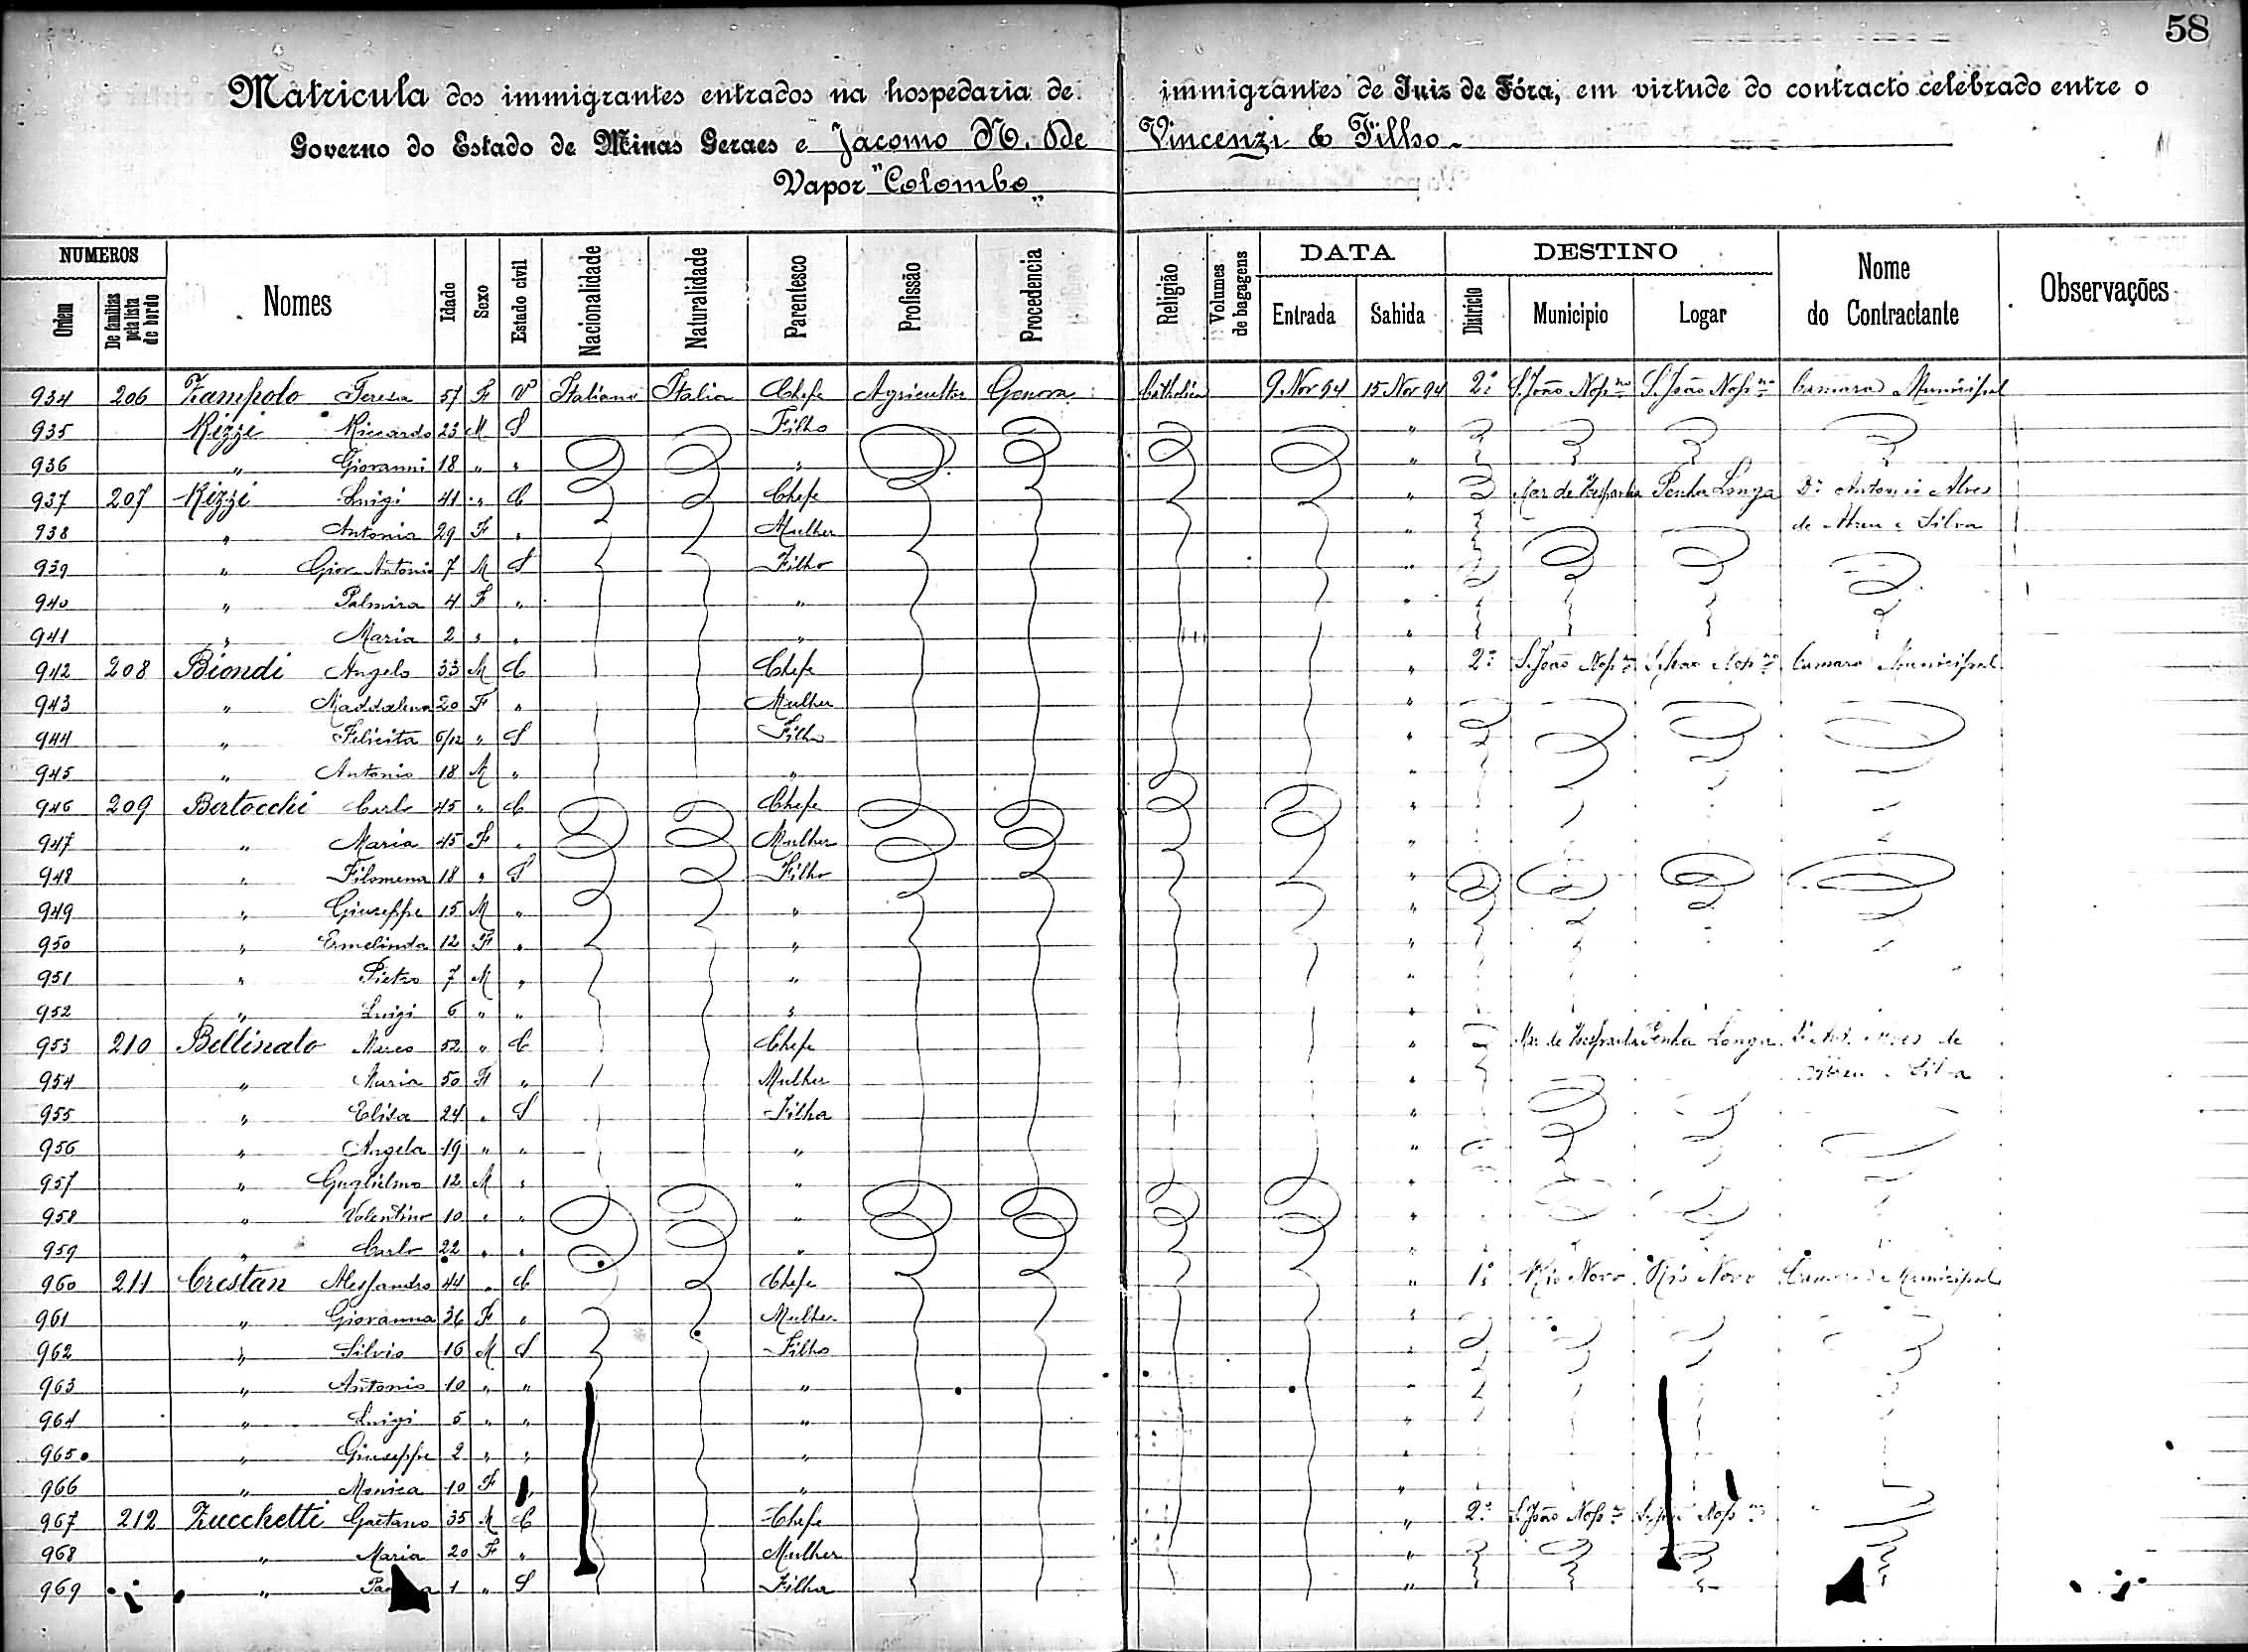 58
Matricula dos immigrantes entrados na hospedaria de immigrantes de Juiz de Fóra, em virtude do contracto celebrado entre o
Governo do Estado de Minas Geraes e Jacomo N. De Vincenzi & Filho
Vapor "Colombo"
NUMEROS DATA DESTINO
Ordem De familias pela lista de bordo Nomes Idade Sexo Estado civil Nacionalidade Naturalidade Parentesco Profissão Procedencia Religião Volumes de bagagens Entrada Sahida Districto Municipio Logar Nome do Contractante Observações
934 206 Zampolo Teresa 57 F V Italiana Italia Chefe Agricultor Genova Catholica 9 Nov 94 15 Nov 94 2º S. João Nepno S. João Nepno Camara Municipal
935 Rizzi Riccardo 23 M S Filho "
936 " Giovanni 18 " " " "
937 207 Rizzi Luigi 41 " C Chefe " Mar de Hespanha Penha Longa Dr Antonio Alves
938 " Antonia 29 F " Mulher " de Abreu e Silva
939 " Giov. Antonio 7 M S Filho "
940 " Palmira 4 F " " "
941 " Maria 2 " " " "
942 208 Biondi Angelo 33 M C Chefe " 2º S. João Nepno S. João Nepno Camara Municipal
943 " Maddalena 20 F " Mulher "
944 " Felicita 6/12 " S Filho "
945 " Antonio 18 M " " "
946 209 Bertocchi Carlo 45 " C Chefe "
947 " Maria 45 F " Mulher "
948 " Filomena 18 " S Filho "
949 " Giuseppe 15 M " " "
950 " Ermelinda 12 F " " "
951 " Pietro 7 M " " "
952 " Luigi 6 " " " "
953 210 Bellinato Marco 52 " C Chefe " Mar de Hespanha Penha Longa Dr Ant. Alves de
954 " Maria 50 F " Mulher " Abreu e Silva
955 " Elisa 24 " S Filha "
956 " Angela 19 " " " "
957 " Guglielmo 12 M " " "
958 " Valentino 10 " " " "
959 " Carlo 22 " " " "
960 211 Crestan Alessandro 44 " C Chefe " 1º Rio Novo Rio Novo Camara Municipal
961 " Giovanna 36 F " Mulher "
962 " Silvio 16 M S Filho "
963 " Antonio 10 " " " "
964 " Luigi 5 " " " "
965 " Giuseppe 2 " " " "
966 " Monica 10 F " "
967 212 Zucchetti Gaetano 35 M C Chefe " 2º S. João Nepno S. João Nepno
968 " Maria 20 F " Mulher "
969 " 1 " S Filha "